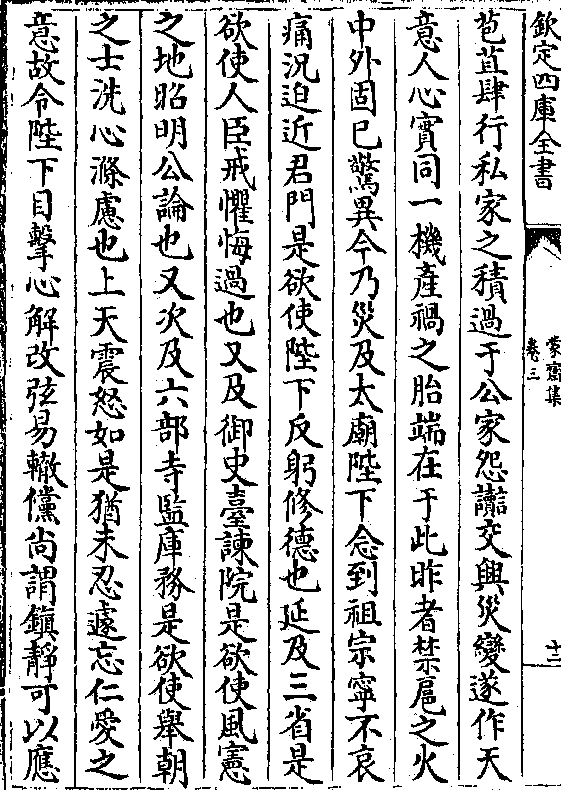 欽定四庫全書
蒙齋集
卷三
十二
苞苴肆行私家之積過于公家怨讟交興災變遂作天
意人心實同一機產禍之胎端在于此昨者禁扈之火
中外固已驚異今乃災及太廟陛下念到祖宗寧不哀
痛況迫近君門是欲使陛下反躬修德也延及三省是
欲使人臣戒懼悔過也又及御史臺諫院是欲使風憲
之地昭明公論也又次及六部寺監庫務是欲使舉朝
之士洗心滌慮也上天震怒如是猶未忍遽忘仁愛之
意故令陛下目擊心解改弦易轍儻尚謂鎮靜可以應